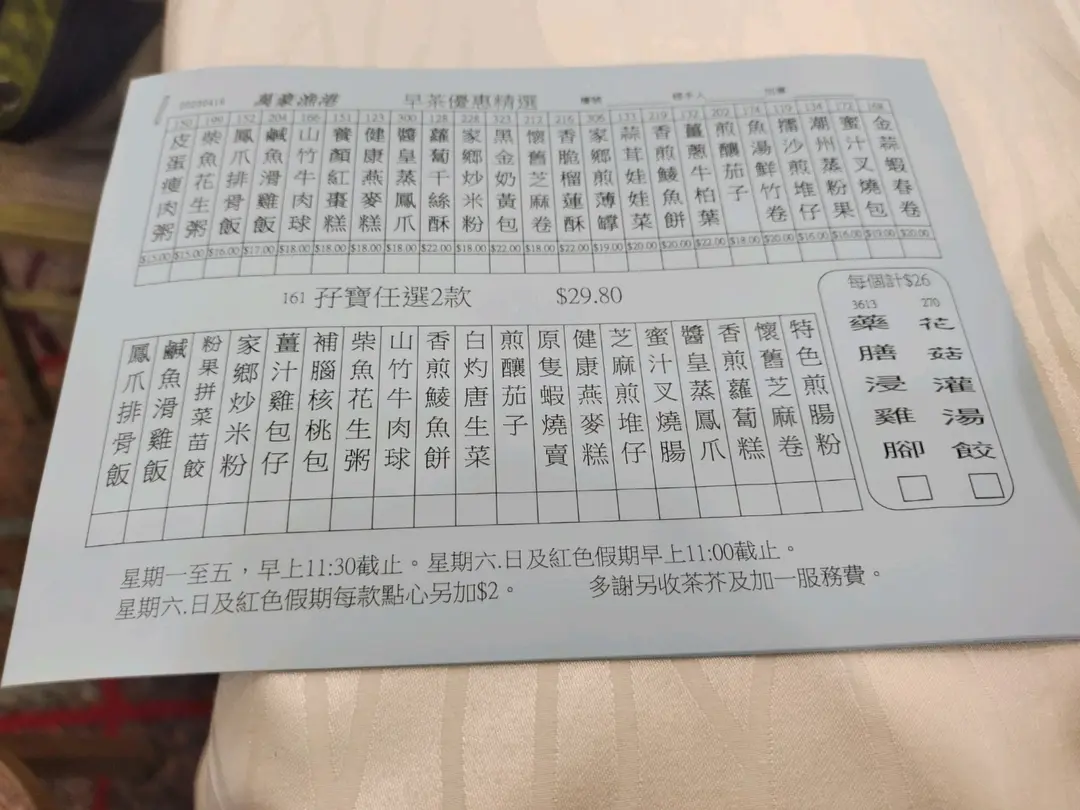 早茶優惠精選
檯號
經手人
168 金蒜蝦春卷 $20.00
172 蜜汁叉燒包 $19.00
134 潮州蒸粉果 $16.00
119 擂沙煎堆仔 $16.00
174 魚湯鮮竹卷 $20.00
202 煎釀茄子 $18.00
132 薑蔥牛柏葉 $22.00
香煎鯪魚餅 $20.00
蒜茸娃娃菜 $20.00
306 家鄉煎薄罉 $19.00
216 香脆榴蓮酥 $22.00
212 懷舊芝麻卷 $18.00
323 黑金奶黃包 $22.00
228 家鄉炒米粉 $18.00
128 蘿蔔千絲酥 $22.00
300 醬皇蒸鳳爪 $18.00
123 健康燕麥糕 $18.00
151 養顏紅棗糕 $18.00
166 山竹牛肉球 $18.00
204 鹹魚滑雞飯 $17.00
152 鳳爪排骨飯 $16.00
199 柴魚花生粥 $15.00
150 皮蛋瘦肉粥 $15.00
161 孖寶任選2款 $29.80
特色煎腸粉
懷舊芝麻卷
香煎蘿蔔糕
醬皇蒸鳳爪
蜜汁叉燒腸
芝麻煎堆仔
健康燕麥糕
原隻蝦燒賣
煎釀茄子
白灼唐生菜
香煎鯪魚餅
山竹牛肉球
柴魚花生粥
補腦核桃包
薑汁雞包仔
家鄉炒米粉
粉果拼菜苗餃
鹹魚滑雞飯
鳳爪排骨飯
每個計$26
270 花菇灌湯餃
3613 藥膳浸雞腳
星期一至五，早上11:30截止。星期六.日及紅色假期早上11:00截止。
星期六.日及紅色假期每款點心另加$2。 多謝另收茶芥及加一服務費。